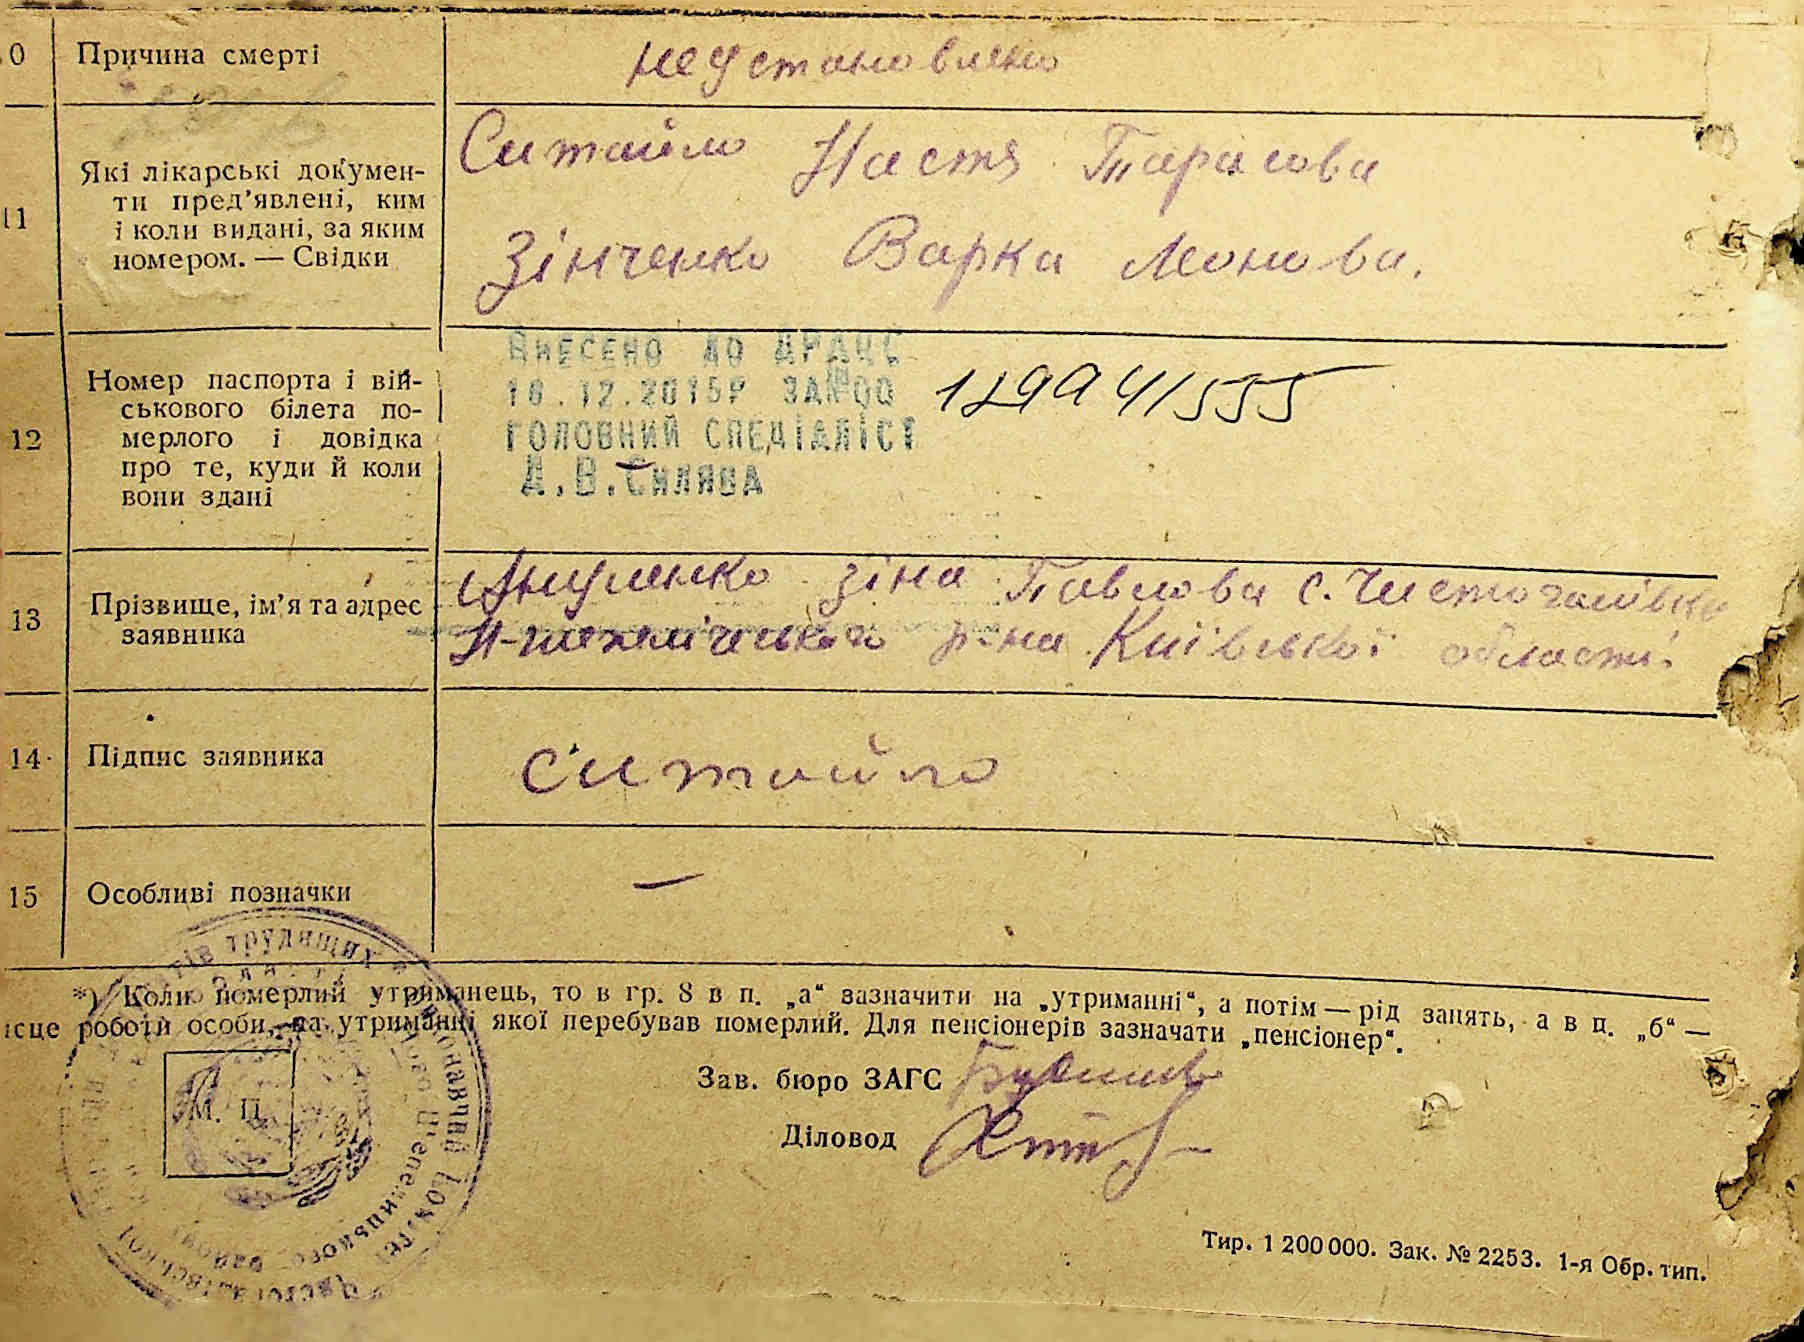 0 Причина смерті
неустановлено
11 Які лікарські докумен-
ти пред’явлені, ким
і коли видані, за яким
номером. — Свідки
Ситайло Настя Тарасова
Зінченко Варка Леонова.
12 Номер паспорта і вій-
ськового білета по-
мерлого і довідка
про те, куди й коли
вони здані
ВНЕСЕНО ДО ДРАЦС
10.12.2015Р ЗА№00
ГОЛОВНИЙ СПЕЦІАЛІСТ
Д.В.Силява
13 Прізвище, ім’я та адрес
заявника
Зіна Павлова с. Чистогалівка
р-на Київської області.
14 Підпис заявника
Ситайло
15 Особливі позначки
—
*) Коли померлий утриманець, то в гр. 8 в п. „а“ зазначити на „утриманні“, а потім — рід занять, а в п. „б“ —
ісце роботи особи, на утриманні якої перебував померлий. Для пенсіонерів зазначати „пенсіонер“.
Зав. бюро ЗАГС
Діловод
М. П.
трудящих
Тир. 1 200 000. Зак. № 2253. 1-я Обр. тип.